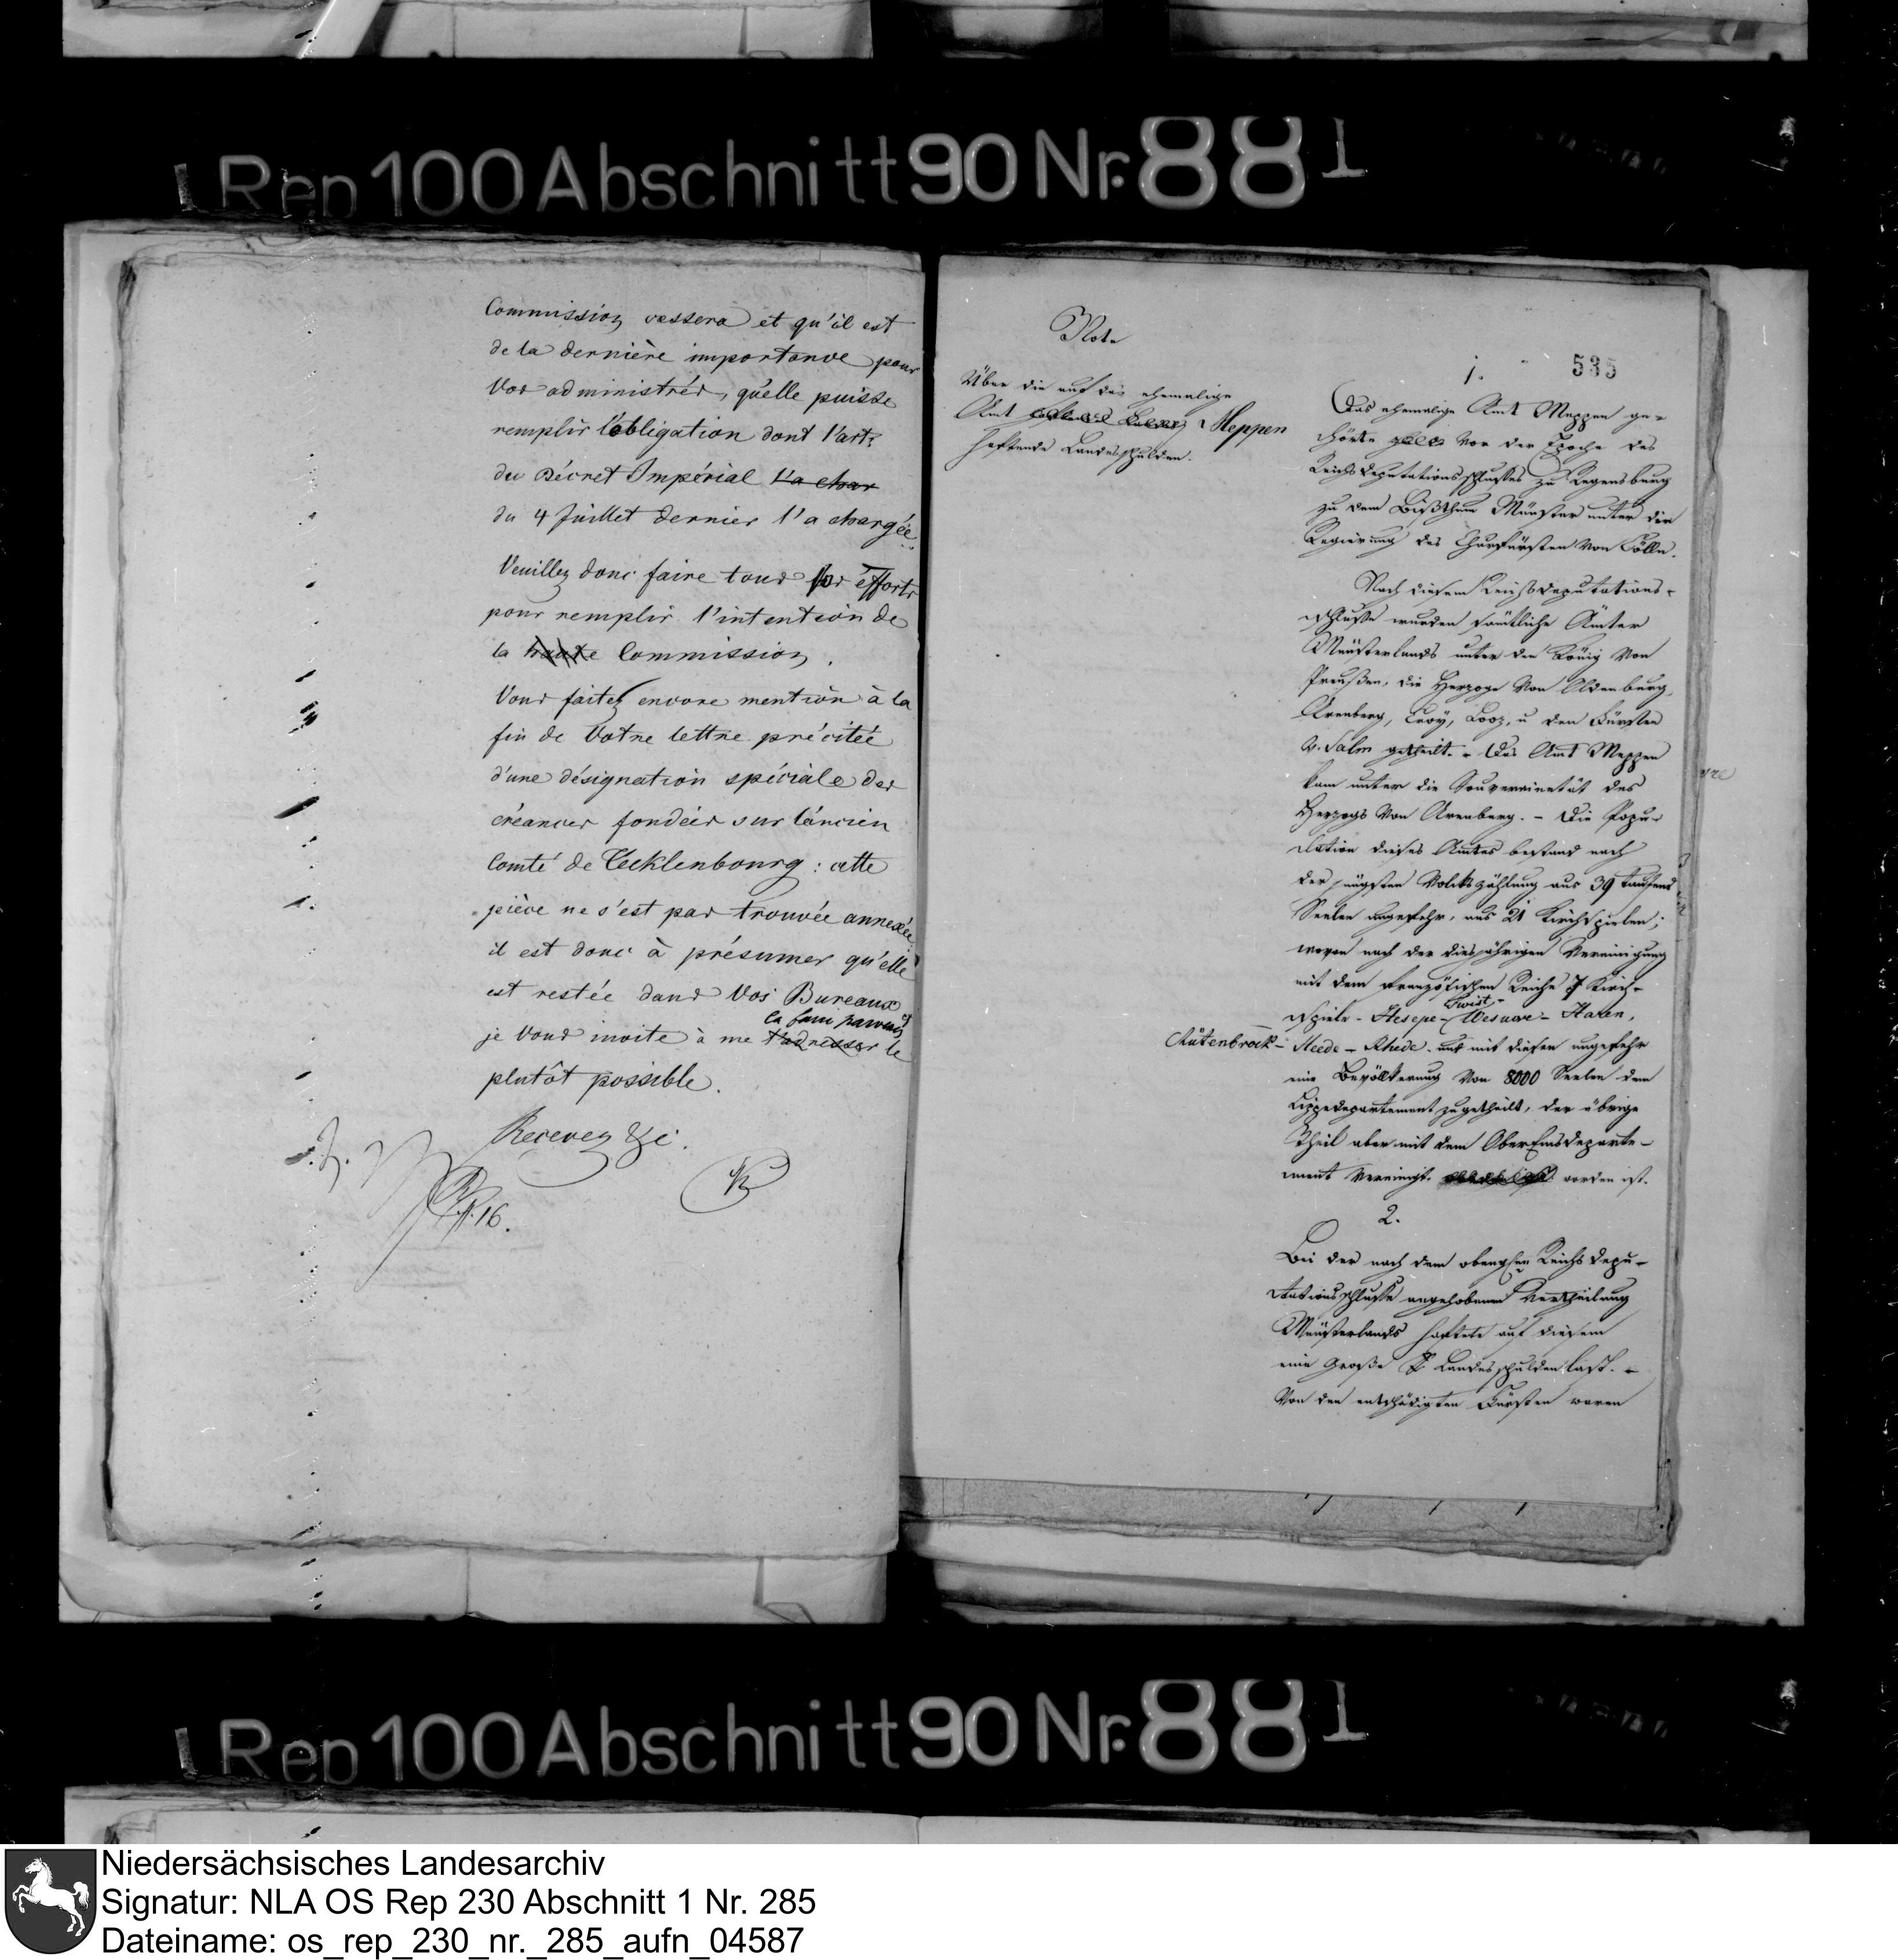 Rep 100 Abschnitt 90 Nr. 881
Commission cessera et qu'il est
de la dernière importance pour
Vos administrés, qu'elle puisse
remplir l'obligation dont l'art.
du Décret Impérial l'a char
du 4 Juillet dernier l'a chargée.
Veuillez donc faire tous Vos efforts
pour remplir l'intention de
la haute Commission.
Vous faites encore mention à la
fin de Votre lettre précitée
d'une désignation spéciale des
créances fondées sur l'ancien
Comté de Tecklenbourg : cette
pièce ne s'est pas trouvée annexée
il est donc à présumer qu'elle
est restée dans Vos Bureaux et
la faire parvenir
je Vous invite à me l'adresser le
plutôt possible.
Recevez &c.
16.
Note
Über die auf das ehemalige
Amt Meppen
haftende Landesschulden.
535
1.
Das ehemalige Amt Meppen ge-
hörte vor der Epoche des
Reichsdeputationsschlusses zu Regensburg
zu dem Bißthum Münster unter der
Regierung des Churfürsten von Cölln.
Nach diesem Reichsdeputations-
schlusse wurden sämtliche Ämter
Münsterlands unter den König von
Preußen, die Herzoge von Oldenburg,
Arenberg, Croy, Looz, u den Fürsten
v. Salm getheilt. - Das Amt Meppen
kam unter die Souverainetät des
Herzogs von Arenberg. - Die Popu-
lation dieses Amtes bestand nach
der jüngsten Volkszählung aus 39 tausend
Seelen ungefehr, aus 21 Kirchspielen;
wovon nach der diesjährigen Vereinigung
mit dem französischen Reiche 7 Kirch-
Twist -
spiele - Hesepe - Wesuwe - Haren,
Rütenbrock - Heede - Rhede - und mit diesen ungefehr
eine Bevölkerung von 8000 Seelen dem
Lippedepartement zugetheilt, der übrige
Theil aber mit dem OberEmsdeparte-
ment vereinigt worden ist.
2.
Bei der nach dem obengten Reichsdepu-
tationsschlusse angehobenen Vertheilung
Münsterlands haftete auf diesem
eine Große Landesschuldenlast. -
Von den entschädigten Fürsten waren
Rep 100 Abschnitt 90 Nr. 881
Niedersächsisches Landesarchiv
Signatur: NLA OS Rep 230 Abschnitt 1 Nr. 285
Dateiname: os_rep_230_nr._285_aufn_04587